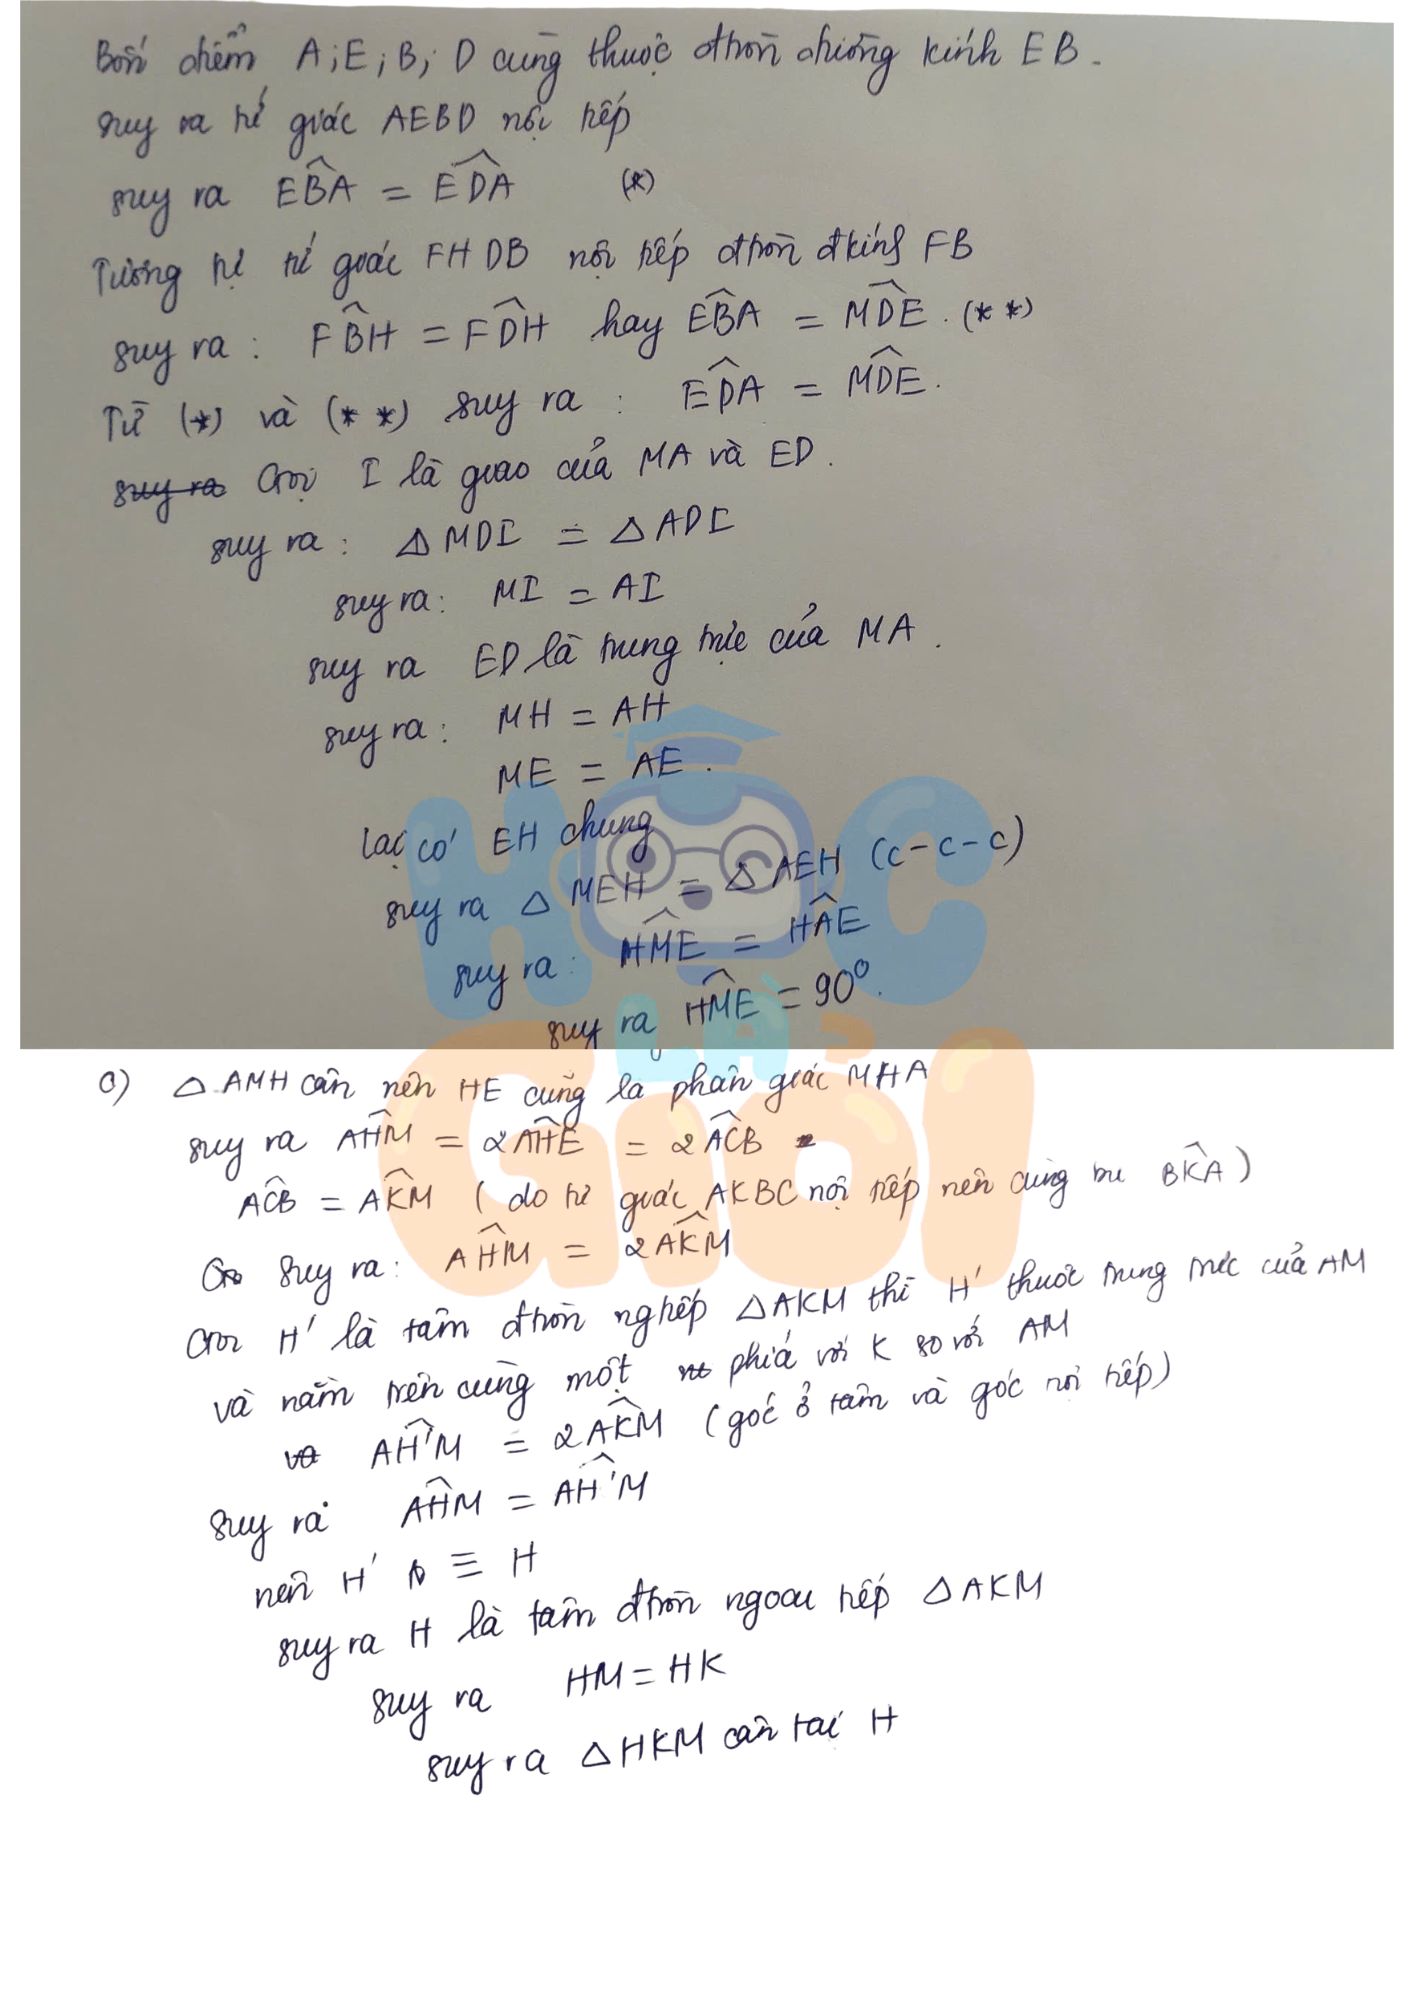 Bốn điểm A; E; B; D cùng thuộc đtròn đường kính EB.
suy ra tứ giác AEBD nội tiếp
suy ra EB̂A = ED̂A (*)
Tương tự tứ giác FHDB nội tiếp đtròn đkính FB
suy ra : FB̂H = FD̂H hay EB̂A = MD̂E. (**)
Từ (*) và (**) suy ra : ED̂A = MD̂E.
suy ra Gọi I là giao của MA và ED.
suy ra : △ MDI = △ ADI
suy ra: MI = AI
suy ra ED là trung trực của MA.
suy ra : MH = AH
ME = AE.
Lại có EH chung
suy ra △ MEH = △ AEH (c-c-c)
suy ra : HM̂E = HÂE
suy ra HM̂E = 90°.
c) △ AMH cân nên HE cũng là phân giác MHA
suy ra AĤM = 2AĤE = 2AĈB
AĈB = AK̂M ( do tứ giác AKBC nội tiếp nên cùng bù BK̂A )
suy ra: AĤM = 2AK̂M
Gọi H' là tâm đtròn ngtiếp △AKM thì H' thuộc trung trực của AM
và nằm trên cùng một phía với K so với AM
AĤ'M = 2AK̂M (góc ở tâm và góc nội tiếp)
suy ra AĤM = AĤ'M
nên H' ≡ H
suy ra H là tâm đtròn ngoại tiếp △AKM
suy ra HM = HK
suy ra △HKM cân tại H
HỌC
LÀ
GIỎI